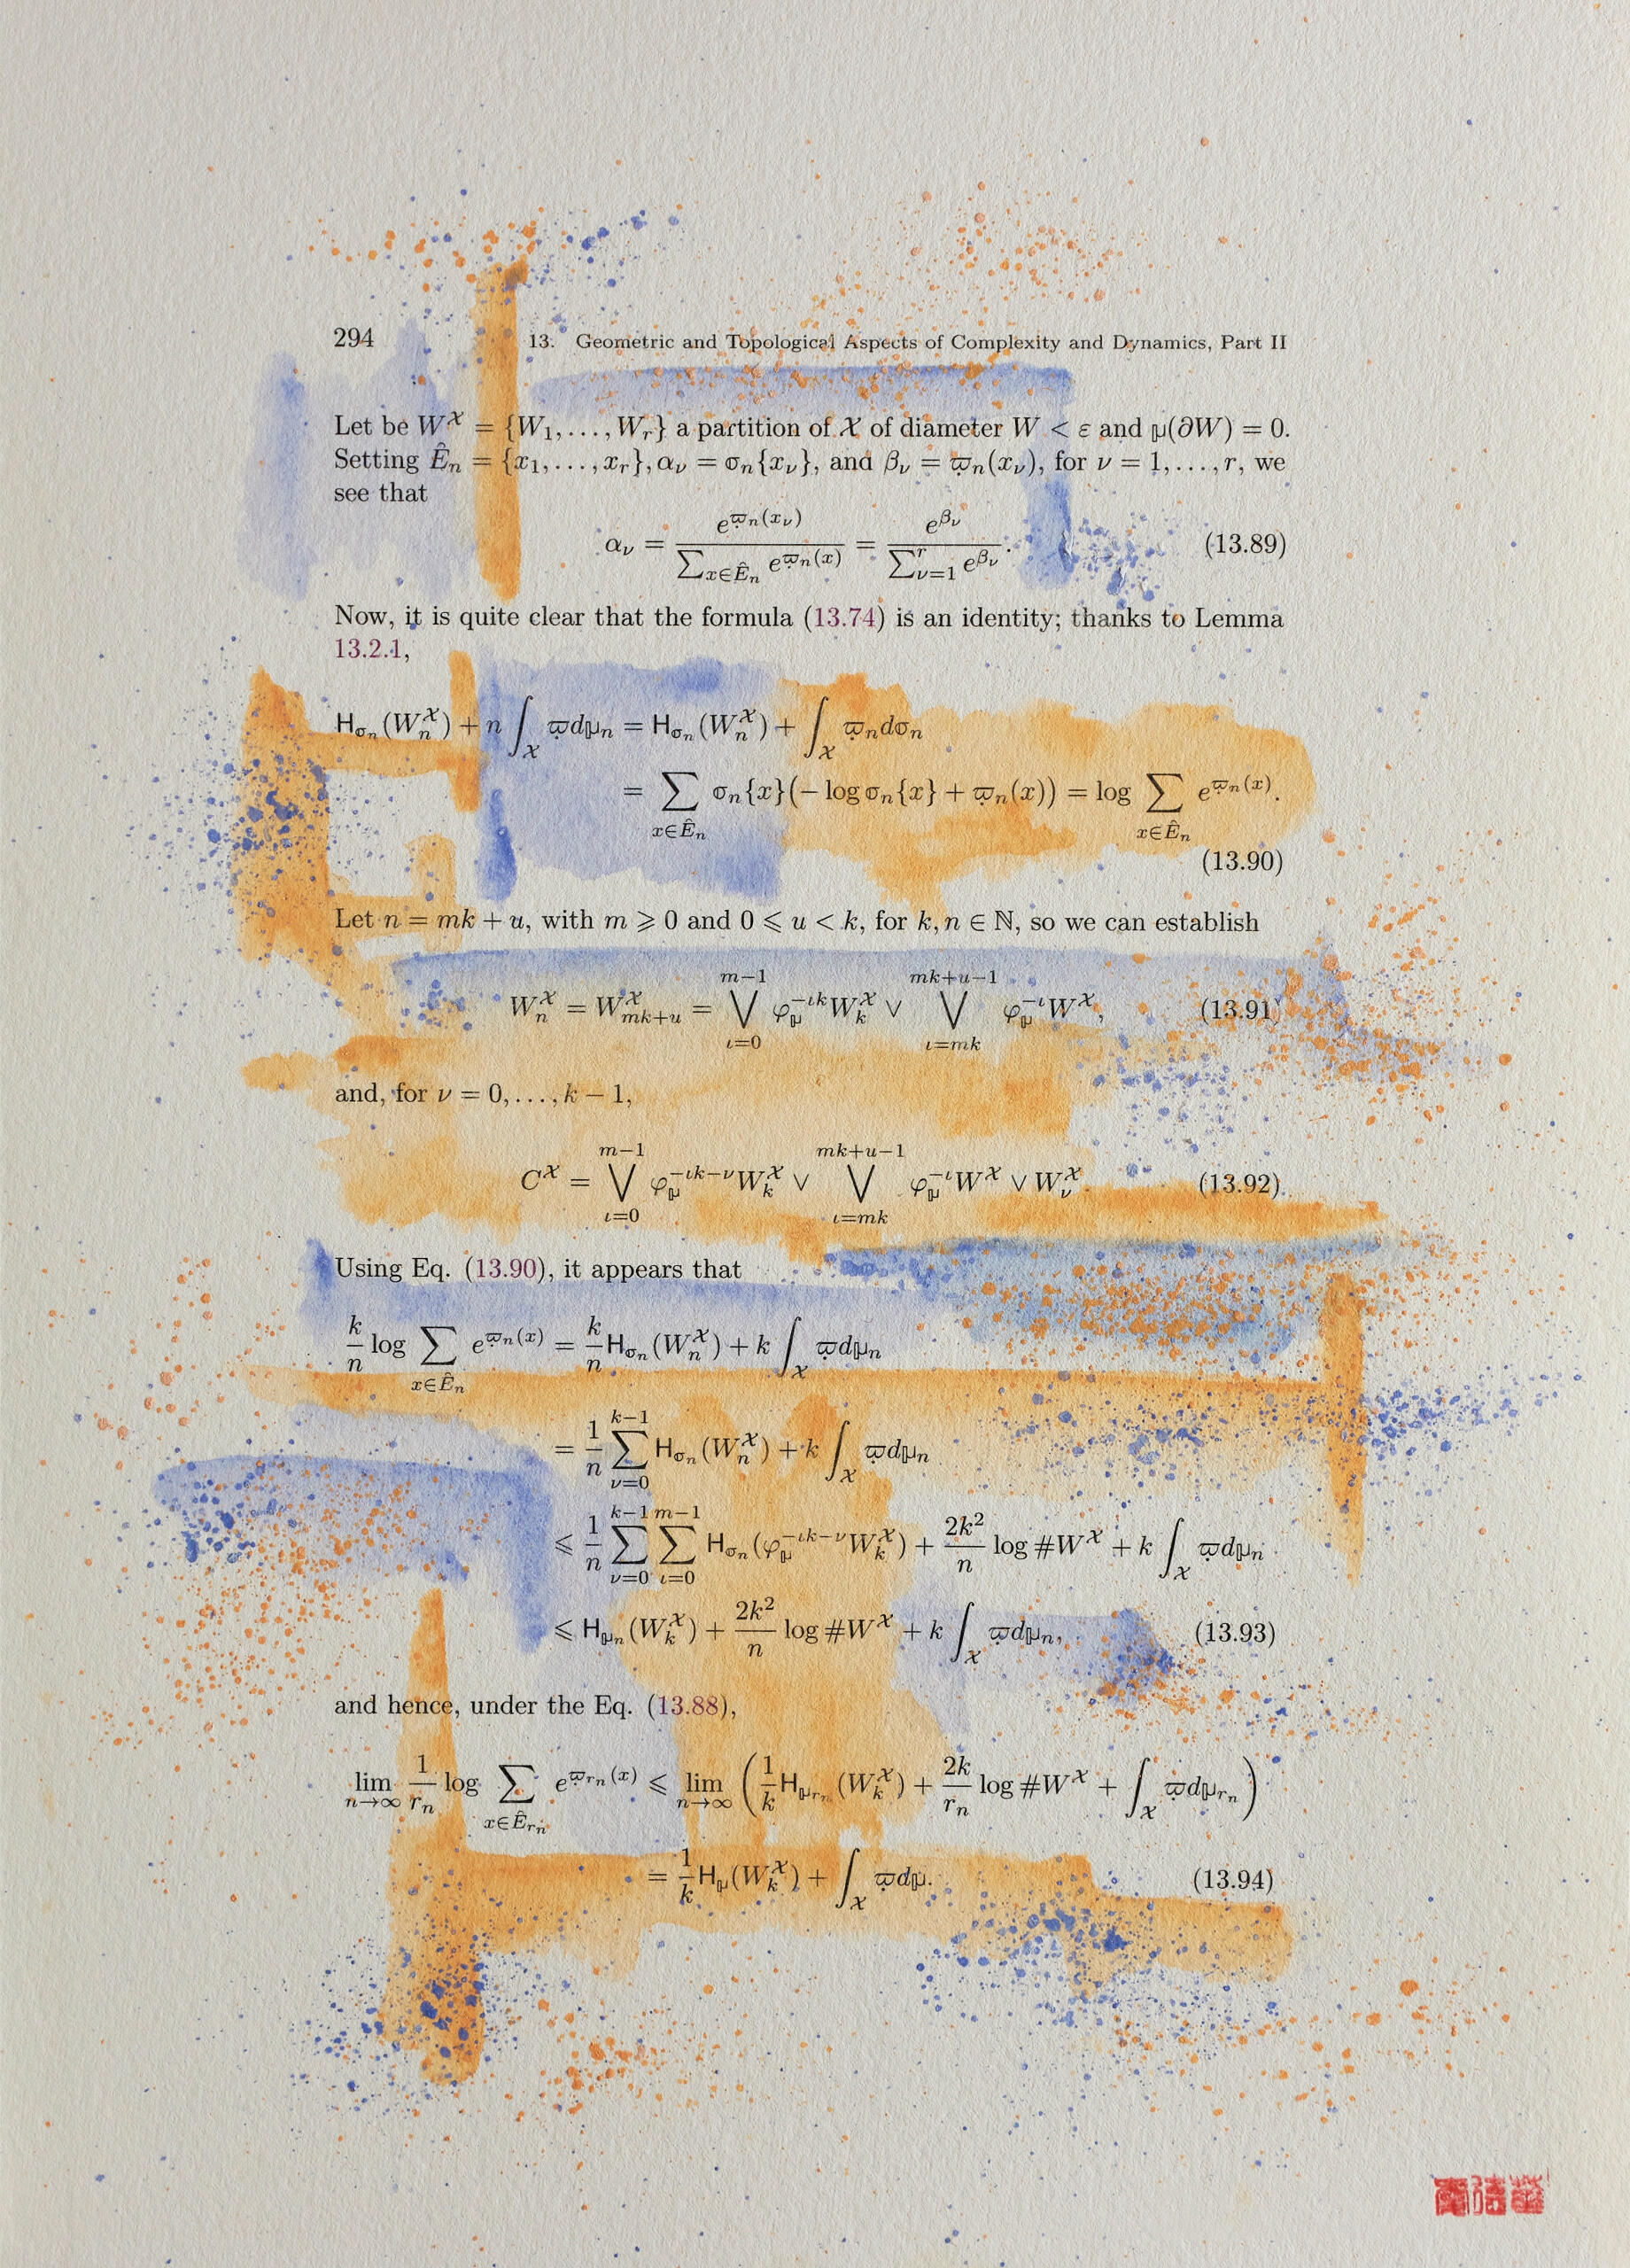 294 13. Geometric and Topological Aspects of Complexity and Dynamics, Part II
Let be W^𝒳 = {W₁, . . . , W_r} a partition of 𝒳 of diameter W < ε and μ(∂W) = 0.
Setting Ê_n = {x₁, . . . , x_r}, α_ν = σ_n{x_ν}, and β_ν = ϖ_n(x_ν), for ν = 1, . . . , r, we
see that
α_ν = e^{ϖ_n(x_ν)} / ∑_{x∈Ê_n} e^{ϖ_n(x)} = e^{β_ν} / ∑_{ν=1}^{r} e^{β_ν}. (13.89)
Now, it is quite clear that the formula (13.74) is an identity; thanks to Lemma
13.2.1,
H_{σ_n}(W_n^𝒳) + n ∫_𝒳 ϖdμ_n = H_{σ_n}(W_n^𝒳) + ∫_𝒳 ϖ_n dσ_n
= ∑_{x∈Ê_n} σ_n{x}(− log σ_n{x} + ϖ_n(x)) = log ∑_{x∈Ê_n} e^{ϖ_n(x)}.
(13.90)
Let n = mk + u, with m ⩾ 0 and 0 ⩽ u < k, for k, n ∈ ℕ, so we can establish
W_n^𝒳 = W_{mk+u}^𝒳 = ⋁_{ι=0}^{m−1} φ_μ^{−ιk} W_k^𝒳 ∨ ⋁_{ι=mk}^{mk+u−1} φ_μ^{−ι} W^𝒳, (13.91)
and, for ν = 0, . . . , k − 1,
C^𝒳 = ⋁_{ι=0}^{m−1} φ_μ^{−ιk−ν} W_k^𝒳 ∨ ⋁_{ι=mk}^{mk+u−1} φ_μ^{−ι} W^𝒳 ∨ W_ν^𝒳. (13.92)
Using Eq. (13.90), it appears that
k/n log ∑_{x∈Ê_n} e^{ϖ_n(x)} = k/n H_{σ_n}(W_n^𝒳) + k ∫_𝒳 ϖdμ_n
= 1/n ∑_{ν=0}^{k−1} H_{σ_n}(W_n^𝒳) + k ∫_𝒳 ϖdμ_n
⩽ 1/n ∑_{ν=0}^{k−1} ∑_{ι=0}^{m−1} H_{σ_n}(φ_μ^{−ιk−ν} W_k^𝒳) + 2k²/n log #W^𝒳 + k ∫_𝒳 ϖdμ_n
⩽ H_{μ_n}(W_k^𝒳) + 2k²/n log #W^𝒳 + k ∫_𝒳 ϖdμ_n, (13.93)
and hence, under the Eq. (13.88),
lim_{n→∞} 1/r_n log ∑_{x∈Ê_{r_n}} e^{ϖ_{r_n}(x)} ⩽ lim_{n→∞} (1/k H_{μ_{r_n}}(W_k^𝒳) + 2k/r_n log #W^𝒳 + ∫_𝒳 ϖdμ_{r_n})
= 1/k H_μ(W_k^𝒳) + ∫_𝒳 ϖdμ. (13.94)